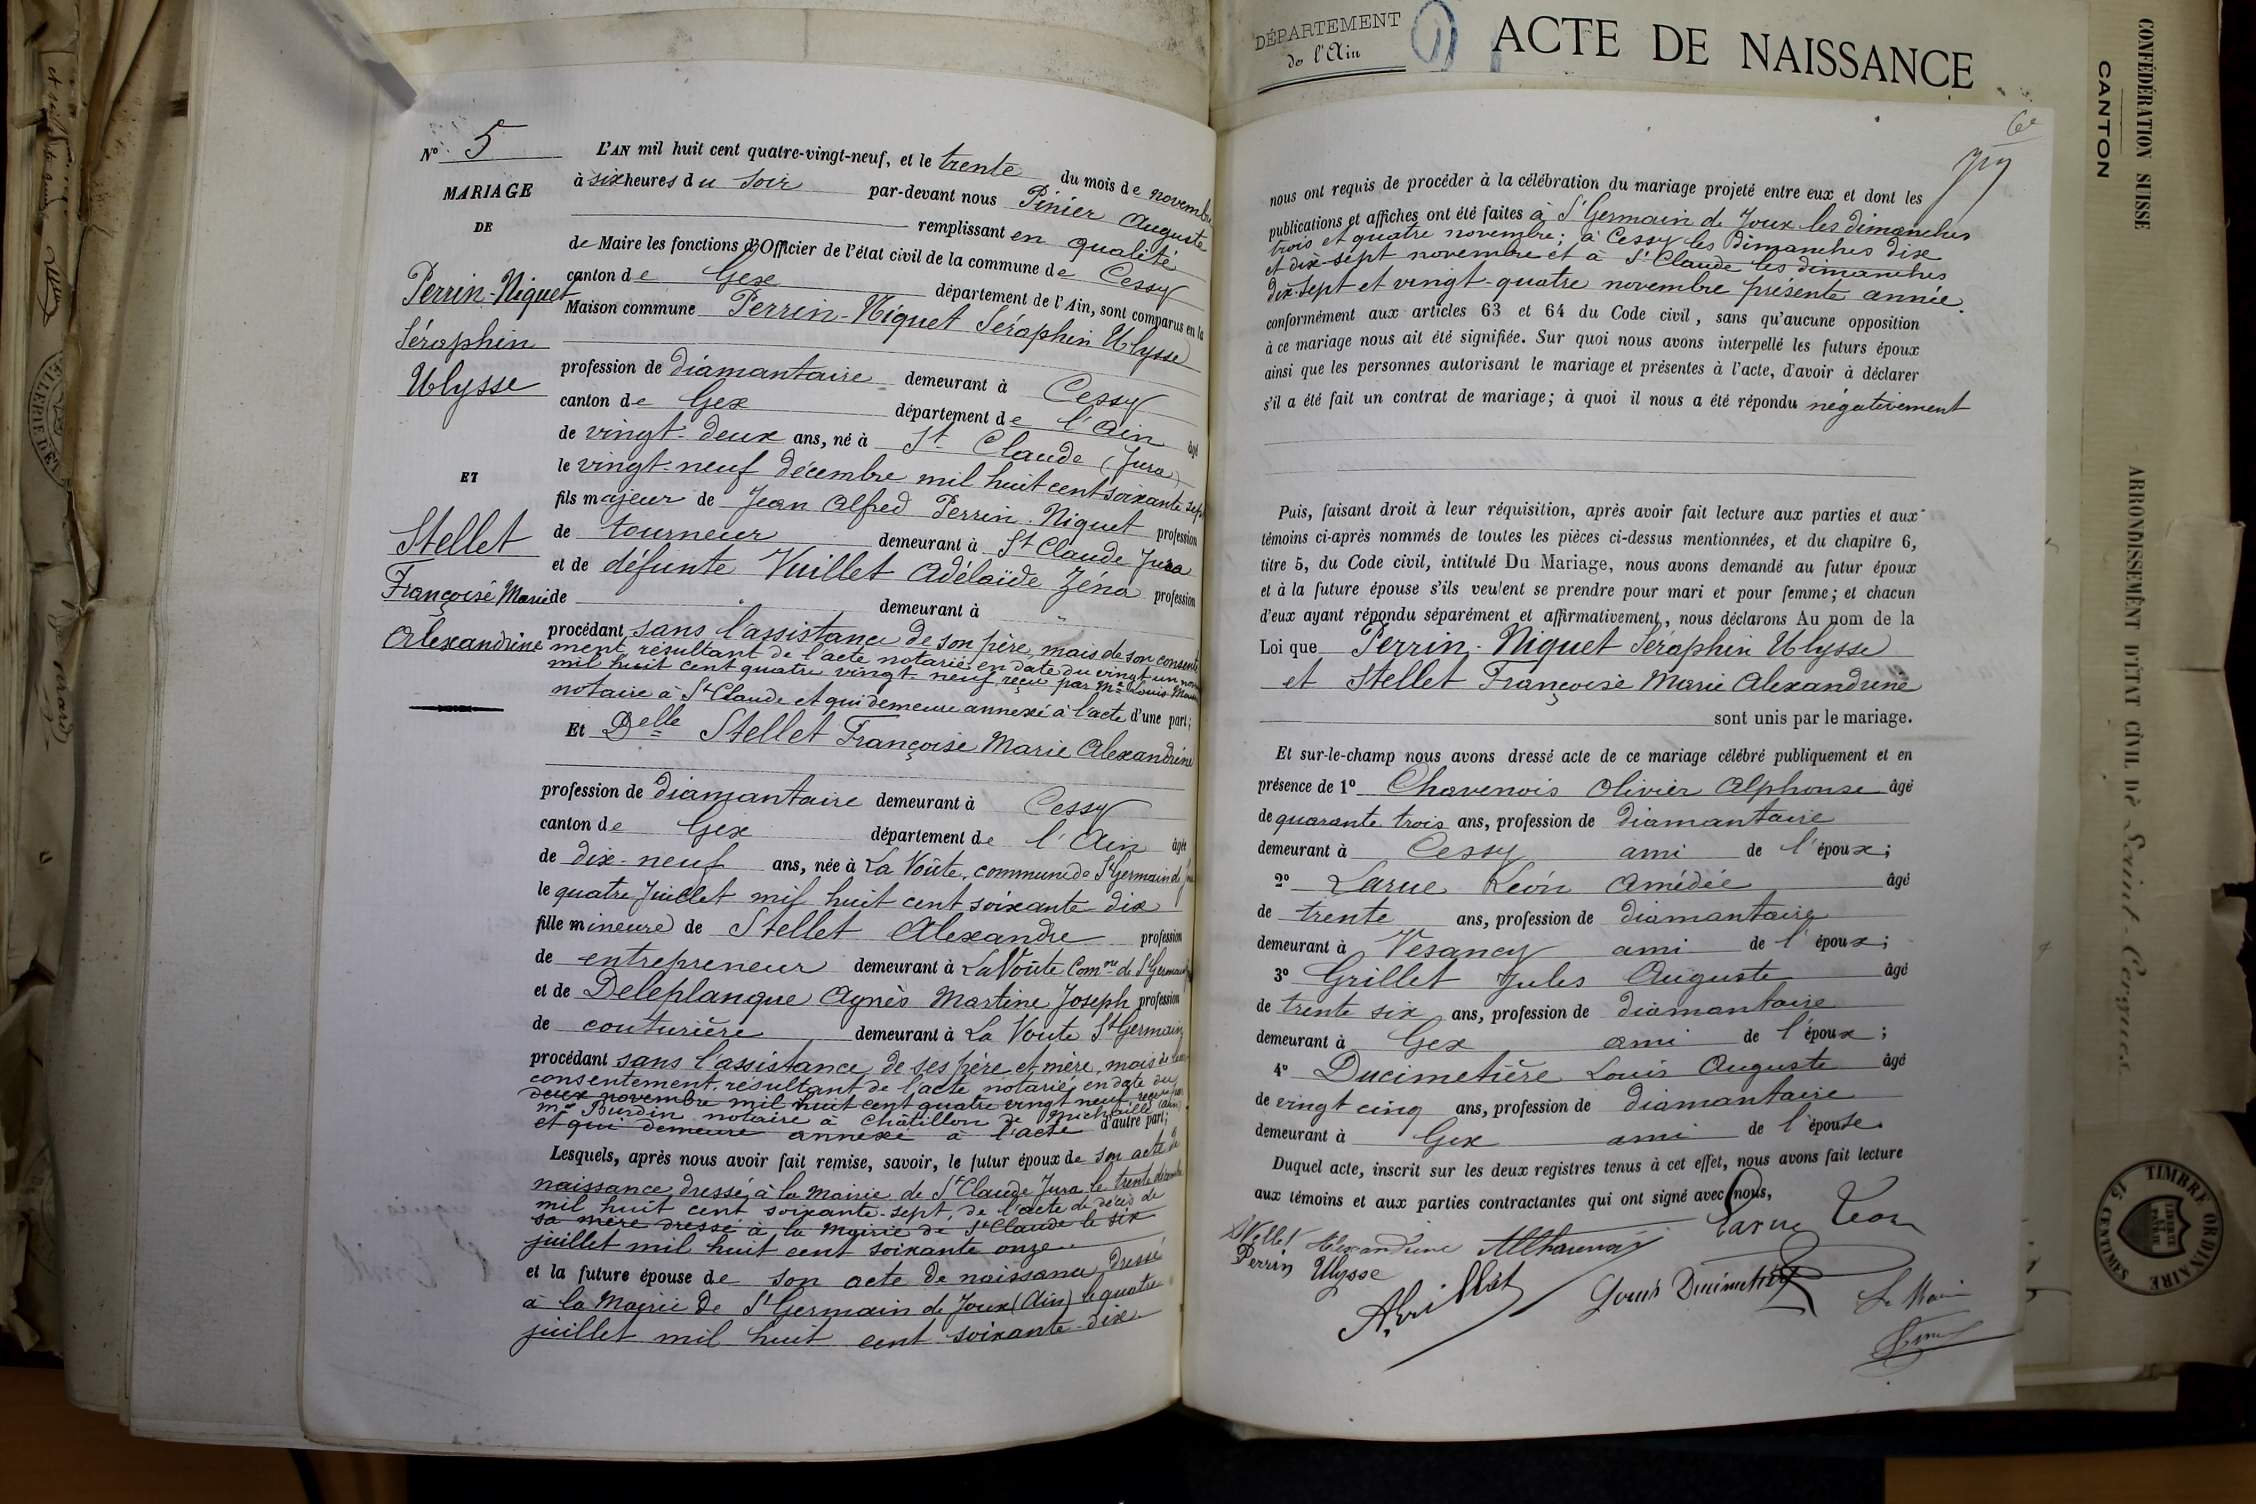 N° 5
MARIAGE
DE
Perrin-Niquet
Séraphin
Ulysse
ET
Stellet
Françoise Marie
Alexandrine
L'AN mil huit cent quatre-vingt-neuf, et le trente du mois de novembre
à six heures du soir par-devant nous Pinier Auguste
remplissant en qualité
de Maire les fonctions d'Officier de l'état civil de la commune de Cessy
canton de Gex département de l'Ain, sont comparus en la
Maison commune Perrin-Niquet Séraphin Ulysse
profession de diamantaire demeurant à Cessy
canton de Gex département de l'Ain âgé
de vingt-deux ans, né à St Claude (Jura)
le vingt-neuf décembre mil huit cent soixante sept
fils majeur de Jean Alfred Perrin-Niquet profession
de tourneur demeurant à St Claude Jura
et de défunte Vuillet Adélaïde Zéna profession
de " demeurant à "
procédant sans l'assistance de son père, mais de son consente
ment, résultant de l'acte notarié en date du vingt un
mil huit cent quatre vingt-neuf reçu par Me Louis
notaire à St Claude et qui demeure annexé à l'acte d'une part;
Et Delle Stellet Françoise Marie Alexandrine
profession de diamantaire demeurant à Cessy
canton de Gex département de l'Ain âgée
de dix-neuf ans, née à La Voûte, commune de St Germain de
le quatre Juillet mil huit cent soixante dix
fille mineure de Stellet Alexandre profession
de entrepreneur demeurant à La Voûte Comne de St Germain
et de Deleplanque Agnès Martine Joseph profession
de couturière demeurant à La Voute St Germain
procédant sans l'assistance de ses père et mère, mais de
consentement résultant de l'acte notarié en date du
deux novembre mil huit cent quatre vingt neuf reçu par
me Burdin notaire à Châtillon de Michaille (Ain)
et qui demeure annexé à l'acte d'autre part;
Lesquels, après nous avoir fait remise, savoir, le futur époux de son acte de
naissance dressé à la mairie de St Claude Jura le trente décembre
mil huit cent soixante-sept, de l'acte de décès de
sa mère dressé à la Mairie de St Claude le six
juillet mil huit cent soixante onze
et la future épouse de son acte de naissance dressé
à la Mairie de St Germain de Joux (Ain) le quatre
juillet mil huit cent soixante-dix
DÉPARTEMENT
de l'Ain
ACTE DE NAISSANCE
6e
nous ont requis de procéder à la célébration du mariage projeté entre eux et dont les
publications et affiches ont été faites à St Germain de Joux les dimanches
trois et quatre novembre; à Cessy les dimanches dix
et dix-sept novembre et à St Claude les dimanches
dix-sept et vingt-quatre novembre présente année.
conformément aux articles 63 et 64 du Code civil, sans qu'aucune opposition
à ce mariage nous ait été signifiée. Sur quoi nous avons interpellé les futurs époux
ainsi que les personnes autorisant le mariage et présentes à l'acte, d'avoir à déclarer
s'il a été fait un contrat de mariage; à quoi il nous a été répondu négativement
Puis, faisant droit à leur réquisition, après avoir fait lecture aux parties et aux
témoins ci-après nommés de toutes les pièces ci-dessus mentionnées, et du chapitre 6,
titre 5, du Code civil, intitulé Du Mariage, nous avons demandé au futur époux
et à la future épouse s'ils veulent se prendre pour mari et pour femme; et chacun
d'eux ayant répondu séparément et affirmativement, nous déclarons Au nom de la
Loi que Perrin-Niquet Séraphin Ulysse
et Stellet Françoise Marie Alexandrine
sont unis par le mariage.
Et sur-le-champ nous avons dressé acte de ce mariage célébré publiquement et en
présence de 1° Chavenois Olivier Alphonse âgé
de quarante trois ans, profession de diamantaire
demeurant à Cessy ami de l'époux;
2° Larue Léon Amédée âgé
de trente ans, profession de diamantaire
demeurant à Vesancy ami de l'époux;
3° Grillet Jules Auguste âgé
de trente six ans, profession de diamantaire
demeurant à Gex ami de l'époux;
4° Ducimetière Louis Auguste âgé
de vingt cinq ans, profession de diamantaire
demeurant à Gex ami de l'épouse.
Duquel acte, inscrit sur les deux registres tenus à cet effet, nous avons fait lecture
aux témoins et aux parties contractantes qui ont signé avec nous,
Stellet Alexandrine Larue Léon
Perrin Ulysse
Louis Ducimetière Le Maire
CONFÉDÉRATION SUISSE
CANTON
ARRONDISSEMENT D'ÉTAT CIVIL DE Saint-Cergues
TIMBRE ORDINAIRE
15 CENTIMES
LIBERTÉ ET PATRIE